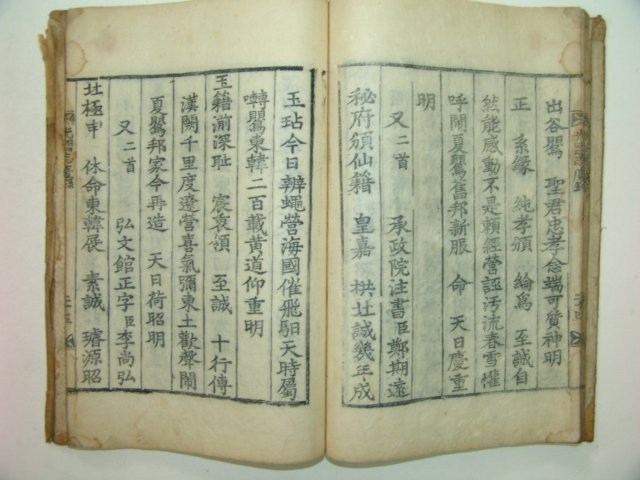 出谷鸎 聖君忠孝念端可質神明
正 系緣 純孝頒 綸爲 至誠自
然能感動不是賴經營誣汚流春雪懽
呼鬧夏鸎舊邦新服 命 天日慶重
明
又二首 承政院注書臣鄭期遠
秘府頒仙籍 皇嘉 拱北誠幾年成
玉玷今日辨蠅營海國催飛馹天時屬
囀鸎東韓二百載黃道仰重明
玉籍湔深耻 宸衷領 至誠 十行傳
漢闕千里度遼營喜氣彌東土歡聲鬧
夏鸎邦家今再造 天日荷昭明
又二首 弘文館正字臣李尚弘
北極申 休命東韓展 素誠 璿源昭